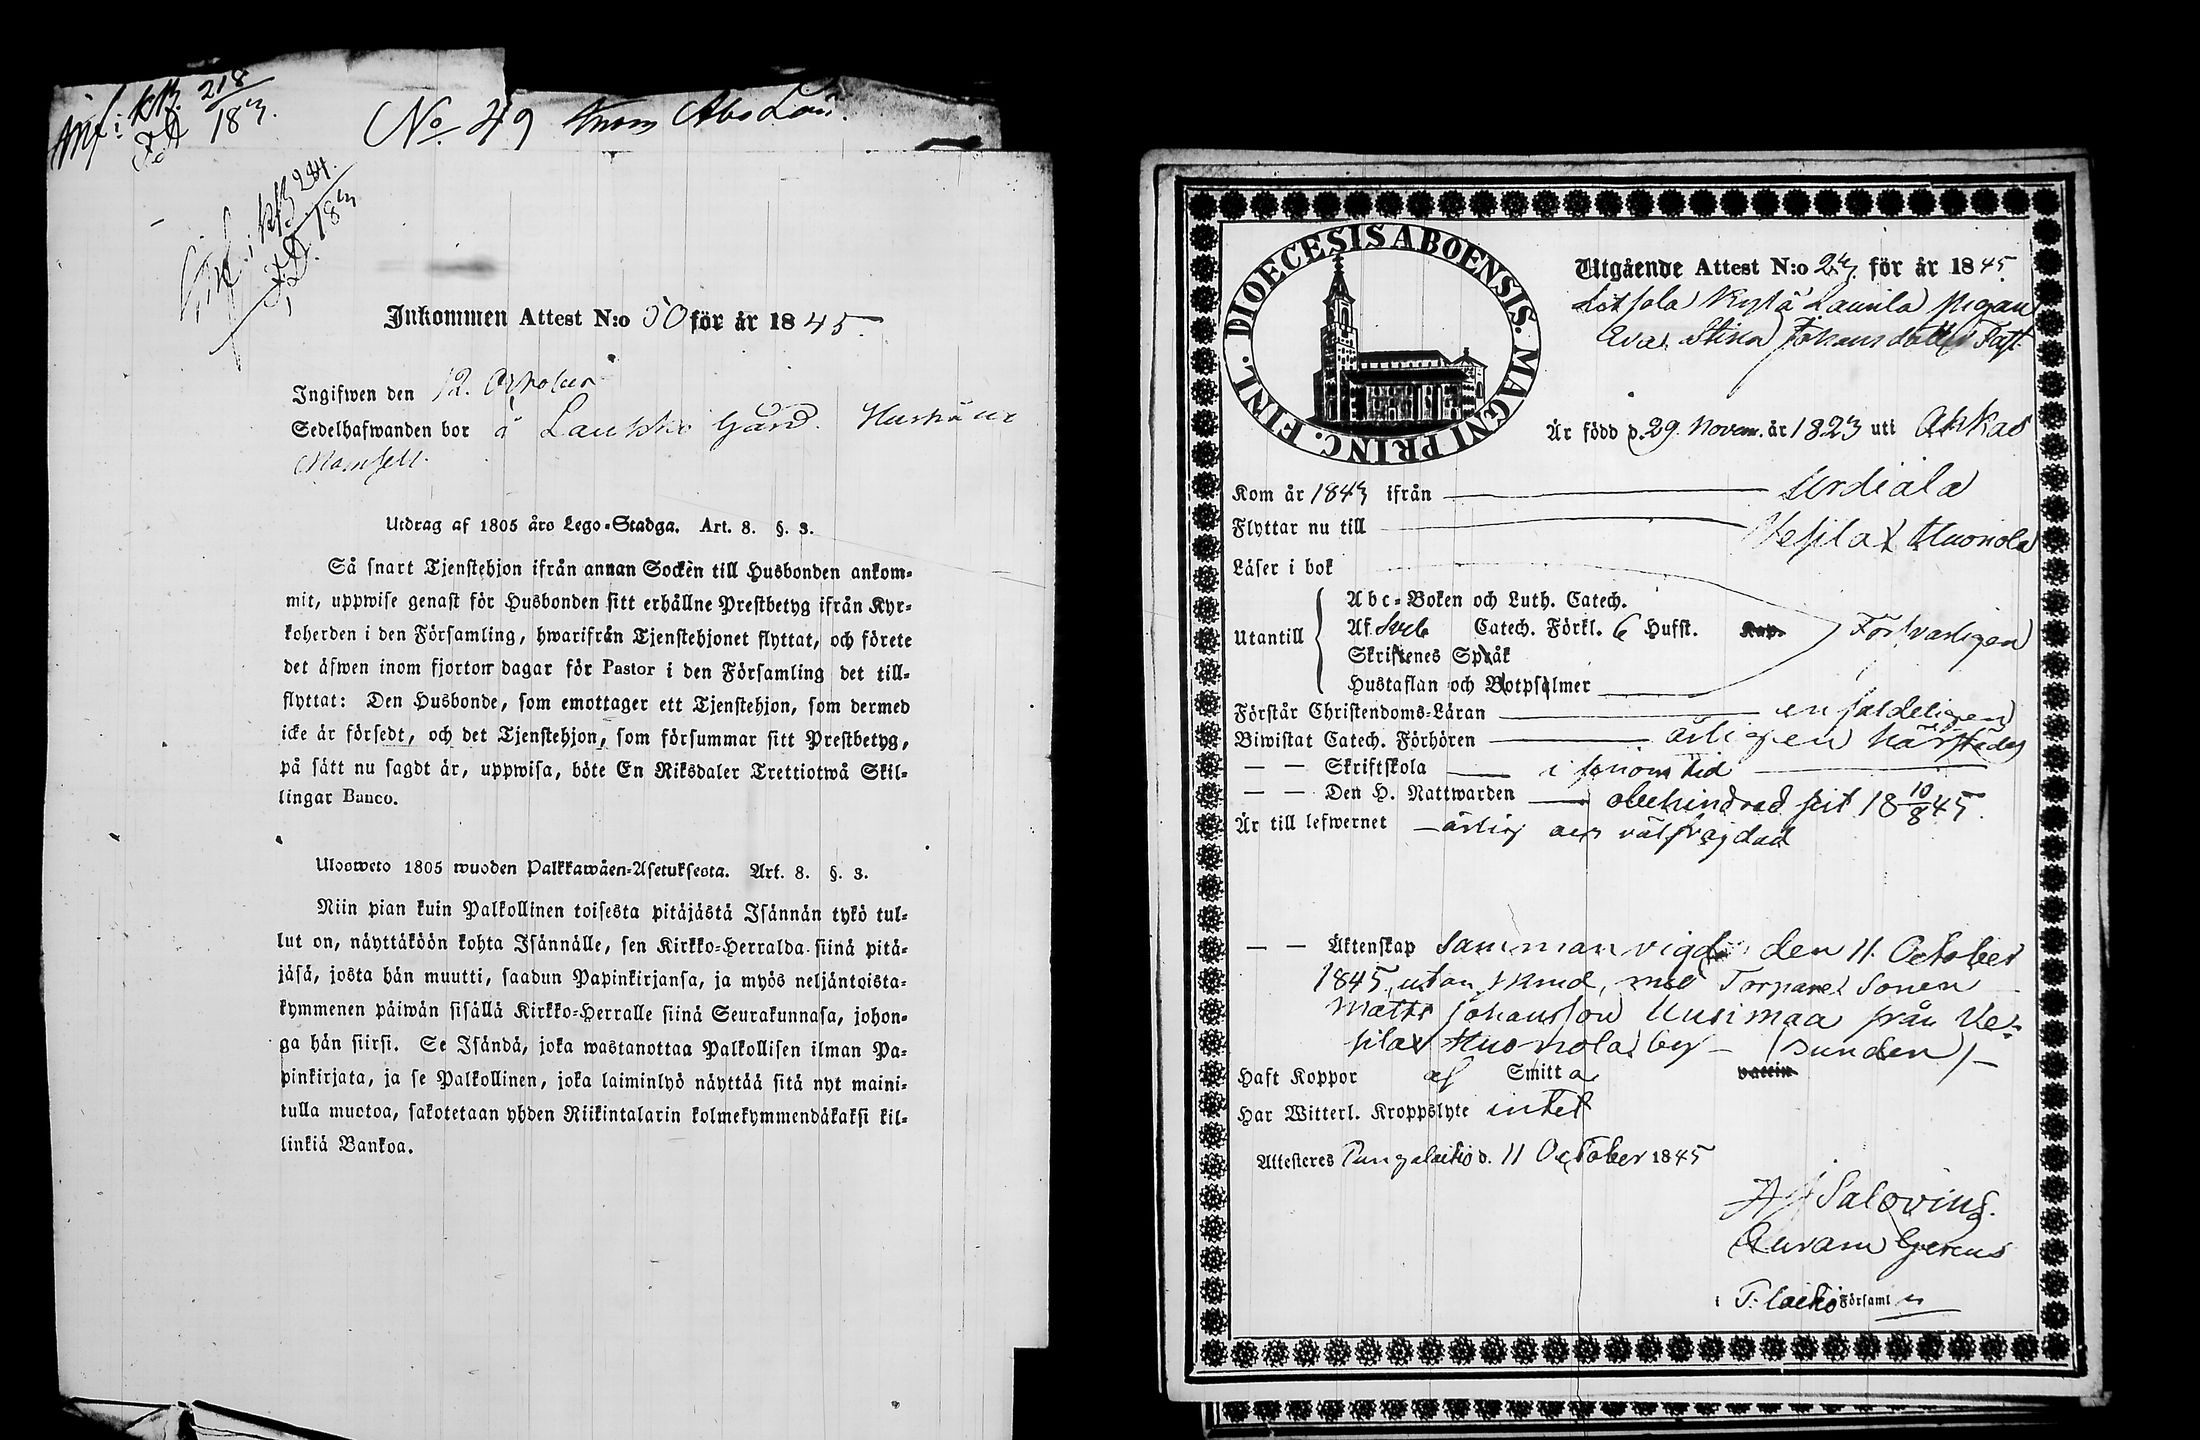 Inf: KB. 218
18
No 49 inom Abo Län.
Inkommen Attest N:o 50 för år 1845.
Ingifwen den 12. October
Sedelhafwanden bor å Laukko Gård. Hushålls
Mamsell.
Utdrag af 1805 års Lego-Stadga. Art. 8. §. 3.
Så snart Tjenstehjon ifrån annan Socken till Husbonden ankom-
mit, uppwise genast för Husbonden sitt erhållne Prestbetyg ifrån Kyr-
koherden i den Församling, hwarifrån Tjenstehjonet flyttat, och förete
det äfwen inom fjorton dagar för Pastor i den Församling det till-
flyttat: Den Husbonde, som emottager ett Tjenstehjon, som dermed
icke är försedt, och det Tjenstehjon, som försummar sitt Prestbetyg,
på sätt nu sagdt är, uppwisa, böte En Riksdaler Trettiotwå Skil-
lingar Banco.
Uloosweto 1805 wuoden Palkkawäen-Asetuksesta. Art. 8. §. 3.
Niin pian kuin Palkollinen toisesta pitäjästä Isännän tykö tul-
lut on, näyttäköön kohta Isännälle, sen Kirkko-Herralda siinä pitä-
jäsä, josta hän muutti, saadun Papinkirjansa, ja myös neljäntoista-
kymmenen päiwän sisällä Kirkko-Herralle siinä Seurakunnasa, johon-
ga hän siirsi. Se Isändä, joka wastanottaa Palkollisen ilman Pa-
pinkirjata, ja se Palkollinen, joka laiminlyö näyttää sitä nyt maini-
tulla muotoa, sakotetaan yhden Riikintalarin kolmekymmendäkaksi kil-
linkiä Bankoa.
DIOECESIS ABOENSIS. MAGNI PRINC. FINL.
Utgående Attest N:o 23 för år 1845
Laurila Pigan
Eva Stina Johansdotter
Är född d. 29 Novem. år 1823 uti Akkas
Kom år 1843 ifrån Urdiala
Flyttar nu till Vesilax Huonola
Läser i bok
Abc-Boken och Luth. Catech.
Utantill Af Sveb Catech. Förkl. 6 Hufst. Kap. Försvarligen
Skriftenes Språk
Hustaflan och Botpsalmer
Förstår Christendoms-Läran enfaldeligen
Biwistat Catech. Förhören årligen härstädes
— — Skriftskola i sinom tid
— — Den H. Nattwarden obehindrad sist 18 10/8 45.
Är till lefwernet ärlig och välfrägdad
— — Äktenskap Sammanvigd den 11. October
1845, utan skrud, med Torpare Sonen
Matts Johansson Uusimaa från Ve-
silax Huonola by — (Sunden) —
Haft Koppor af Smitta vaccin
Har Witterl. Kroppslyte intet
Attesteres Pungalaitio d. 11 October 1845
Salovius.
i P:laitio Församl